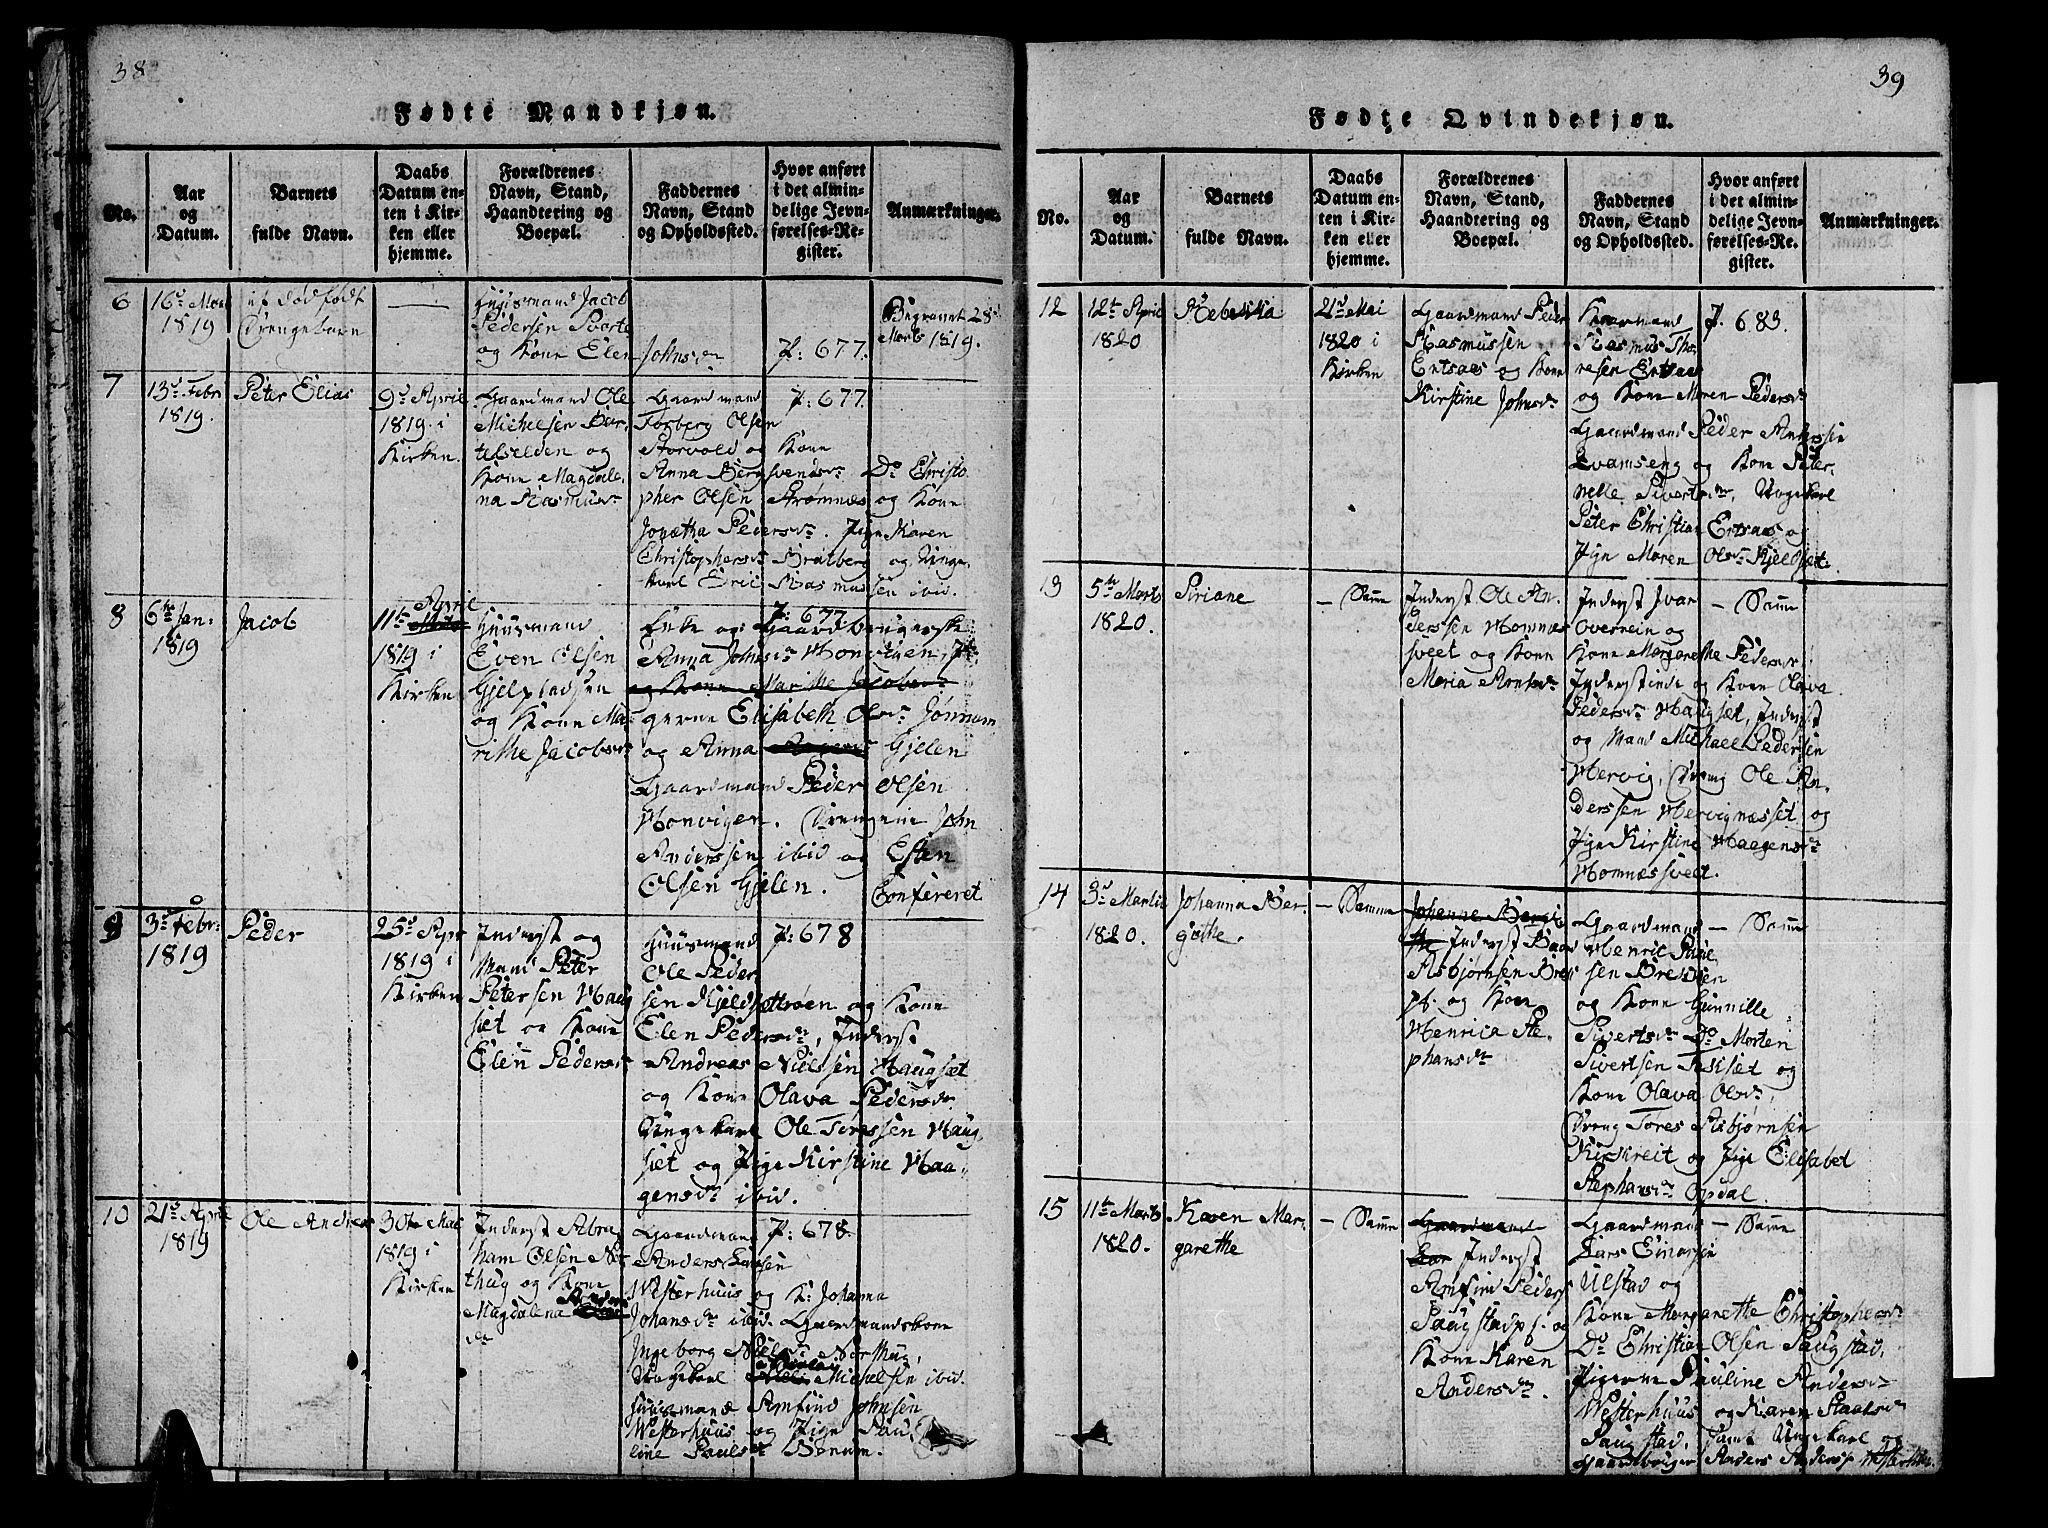 38
Fødte Mandkjøn.
No.
Aar
og
Datum.
Barnets
fulde Navn.
Daabs
Datum en-
ten i Kir-
ken eller
hjemme.
Forældrenes
Navn, Stand,
Haandtering og
Boepæl.
Faddernes
Navn, Stand
og Opholdssted.
Hvor anført
i det almin-
delige Jevn-
førelses-Re-
gister.
Anmærkninger.
6
16de Mart
1819
et dødfødt
Drengebarn
Huusmand Jacob
Pedersen Svarte
og Kone Elen Johnsdr
P: 677.
Begravet 28de
Marts 1819.
7
13de Febr
1819.
Peter Elias
9de April
1819 i
Kirken.
Gaardmand Ole
Michelsen Bar-
telselden og
Kone Magdale-
na Rasmusdr
Gaardmand
Torberg Olsen
Aarvold og Kone
Anna Bergsvendsdr Do Christo-
pher Olsen Strømnæs og Kone
Jonetha Pedersdr. Pige Karen
Christophersdr Bratberg og Unge-
karl Eric Rasmussen ibid.
P: 677
8
6te Jan:
1819
Jacob
11te April
1819 i
Kirken
Huusmand
Even Olsen
Gjelpladsen
og Kone Ma-
rithe Jacobsdr
P: 677
Enke og Gaardbrugerske
Anna Johnsdr Honvigen, Pi-
og Kone Marithe Jacobsdr
gerne Elisabeth Olsdr Jønnum
og Anna Gjelen
Gaardmand Peder Olsen
Honvigen. Drengene John
Anderssen ibid og Esten
Olsen Gjelen.
Confereret
9
3de Febr:
1819
Peder
25de Apr
1819 i
Kirken
Inderst og
Mand Peter
Petersen Haug
sæt og Kone
Elen Pedersdr
Huusmand
Ole Peder
sen Kjeldsetrøen og Kone
Elen Pedersdr, Inderst
Andreas Nielssen Haugsæt
og Kone Olava Pedersdr
Ungekarl Ole Toressen Haug-
sæt og Pige Kirstine Haa-
gensdr ibid.
P: 678
10
21de April
1819
Ole Andreas
30te Mai
1819 i
Kirken
Inderst Abra-
ham Olsen Nor
thug og Kone
Magdalena Anders
dr
Gaardmand
Anders Larsen
Westerhuus og K: Johanna
Johansdr ibid. Gaardmandskone
Ingeborg Nielsdr Northug,
Ungekarl Michelsen ibid.
Huusmand Amfind Johnsen
Westerhuus og Pige Pau-
line Paulsdr Bonum.
P: 678.
39
Fødte Qvindekjøn.
No.
Aar
og
Datum.
Barnets
fulde Navn.
Daabs
Datum en-
ten i Kir-
ken eller
hjemme.
Forældrenes
Navn, Stand,
Haandtering og
Boepæl.
Faddernes
Navn, Stand
og Opholdssted.
Hvor anført
i det almin-
delige Jevn-
førelses-Re-
gister.
Anmærkninger.
12
12te April
1820
Rebecka
21de Mai
1820 i
Kirken
Gaardmand Peder
Rasmussen
Ertsaas og Kone
Kirstine Johnsdr
Gaardmand
Rasmus Tho-
resen Ertsaas
og Kone Maren Pedersdr
Gaardmand Peder Anderssen
Qvamseng og Kone Peter-
nelle Sivertsdr, Ungekarl
Peter Christian Ertsaas og
Pige Maren Olsdr Kjeldsæt.
P. 683.
13
5te Marts
1820.
Siriane
— Samme
Inderst Ole An-
derssen Homnæs
sveet og Kone
Maria Arntsdr
Inderst Ivar
Overnein og
Kone Margrethe Pedersdr
Inderstinde og Kone Olava
Pedersdr Haugset, Inderst
og Mand Michael Pedersen
Hervig, Dreng Ole An-
derssen Hervignæsset og
Pige Kirstine Haagensdr
Homnæssveet.
— Samme
14
3de Martii
1820.
Johanna Ber-
githe.
— Samme
Inderst Baard
Asbjørnsen Bres
pf. og Kone
Henrica Ste-
phansdr
Gaardmand
Henric Paul-
sen Bresden
og Kone Gunnille
Sivertsdr Do Morten
Sivertsen Tesset og
Kone Olava Olsdr,
Dreng Tores Asbjørnsen
Kirkreit og Pige Elisabet
Stephansdr Opdal.
— Samme
15
11te Marts
1820.
Karen Mar-
garethe
— Samme
Gaardmand
Inderst
Amfind Peders
Saugstad pf. og
Kone Karen
Andersdr.
Gaardmand
Lars Einarsen
Ulstad og
Kone Margarethe Christophersdr
Do Christian Olsen Saugstad,
Pigerne Pauline Andersdr
Westerhuus og Karen Staalsdr
Saugstad, samt Ungekarl og
Gaardbruger Anders Anderss Westerhuus.
— Samme